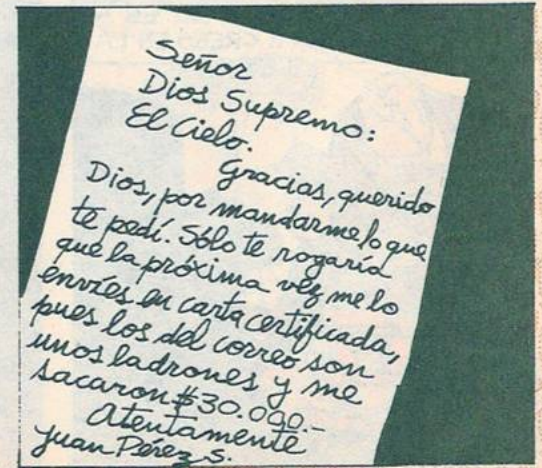 Señor
Dios Supremo:
El Cielo.
Gracias, querido
Dios, por mandarme lo que
te pedí. Sólo te rogaría
que la próxima vez me lo
envíes en carta certificada,
pues los del correo son
unos ladrones y me
sacaron $30.000.-
Atentamente
Juan Pérez S.